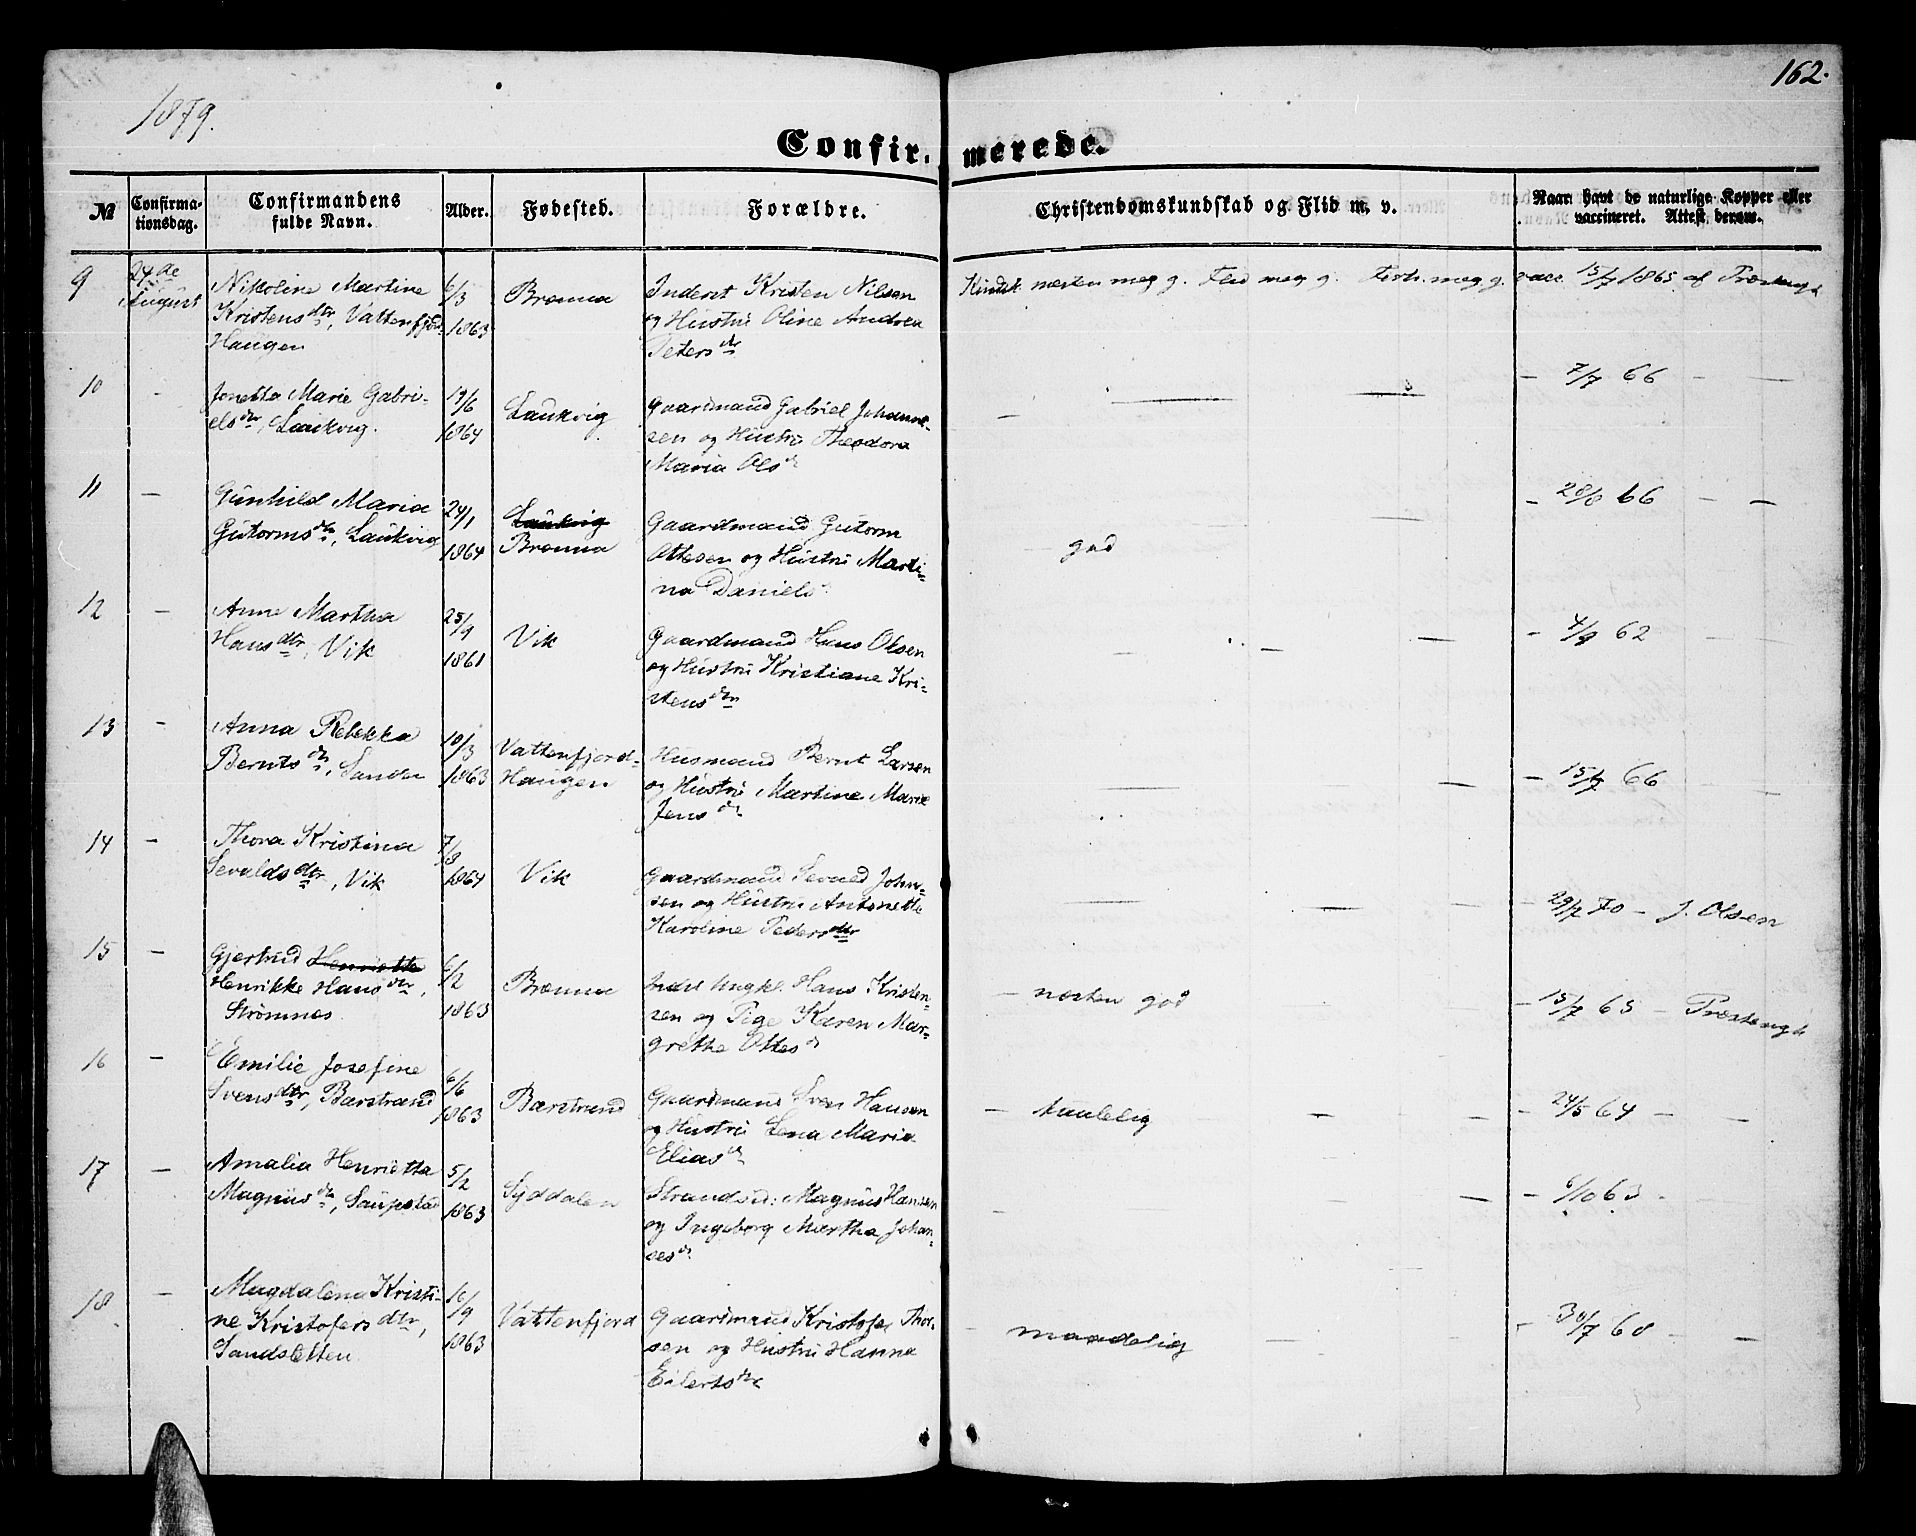 1879.
162.
Confir-
merede.
№
Confirma-
tionsdag.
Confirmandens
fulde Navn.
Alder.
Fødested.
Forældre.
Christendomskundskab og Flid m. v.
Naar havt de naturlige Kopper eller
vaccineret. Attest derom.
9
24de
August
Nikoline Martine
Kristensdtr, Vattenfjord-
Haugen
6/3
1863
Brenna
Inderst Kristen Nilsen
og Hustru Oline Andrea
Petersdtr
Kundsk. næsten meg g. Flid meg g. Forh. meg g.
vacc. 15/7 1865 af
10
-
Jonetta Marie Gabri-
elsdtr, Laukvig.
19/6
1864
Laukvig
Gaardmand Gabriel Johanne-
sen og Hustru Theodora
Maria Olsdr
— — — —
- 7/7 66 - -
11
-
Gunhild Maria
Gutormsdtr, Laukvig
24/1
1864
Laukvig
Brenna
Gaardmand Gutorm
Ottesen og Hustru Marti-
na Danielsdr
- god - -
- 28/8 66 - -
12
-
Anne Martha
Hansdtr, Vik
25/9
1861
Vik
Gaardmand Hans Olsen
og Hustru Kristiane Kri-
stensdtr
- - -
- 4/9 62 - -
13
-
Anna Rebekka
Berntsdtr, Sandei
10/3
1863
Vattenfjord-
Haugen
Husmand Bernt Larsen
og Hustru Martine Marie
Jensdr
- - -
- 15/7 66
14
-
Thora Kristina
Sevaldsdtr, Vik
7/8
1864
Vik
Gaardmand Sevald John-
sen og Hustru Antonette
Karoline Pedersdtr
- - -
29/7 70 - J. Olsen
15
-
Gjertrud Henriette
Henrikke Hansdtr,
Strømnes.
6/2
1863
Brenna
Inds Ungkl. Hans Kristen-
sen og Pige Karen Mar-
grethe Ottesdr
- næsten god - -
- 15/7 65 -
16
-
Emilie Josefine
Svensdtr, Barstrand
6/6
1863
Barstrand
Gaardmand Sven Hansen
og Hustru Lena Maria
Eliasdr
- taalelig - -
- 24/5 64 - -
17
-
Amalia Henrietta
Magnusdtr, Saupstad
5/2
1863
Syddalen
Strandsid: Magnus Hansen
og Ingeborg Martha Johan-
sesdr
- - -
- 6/10 63 -
18
-
Magdalena Kristi-
ne Kristofersdtr,
Sandsletten.
16/9
1863
Vattenfjord
Gaardmand Kristofer Thor-
sen og Hustru Hanna
Eilertsdtr
- maadelig - -
- 30/7 68 - -